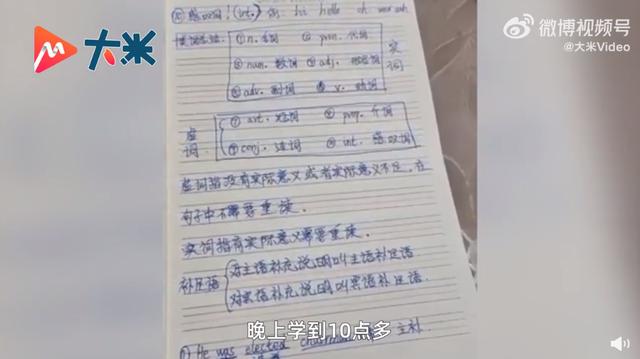 大米
微博视频号
@大米Video
⑩感叹词:(int.) 例: hi hello oh
①n. 名词 ② pron. 代词
③num. 数词 ④adj. 形容词
⑤adv. 副词 ⑥ v. 动词
实词
虚词
⑦ art. 冠词 ⑧ prep. 介词
⑨conj. 连词 ⑩ int. 感叹词
虚词指没有实际意义或者实际意义不足,在
句子中不需要重读.
实词指有实际意义需要重读.
补足语
对主语补充说明叫主语补足语
对宾语补充说明叫宾语补足语
晚上学到10点多
He was elected 主补.